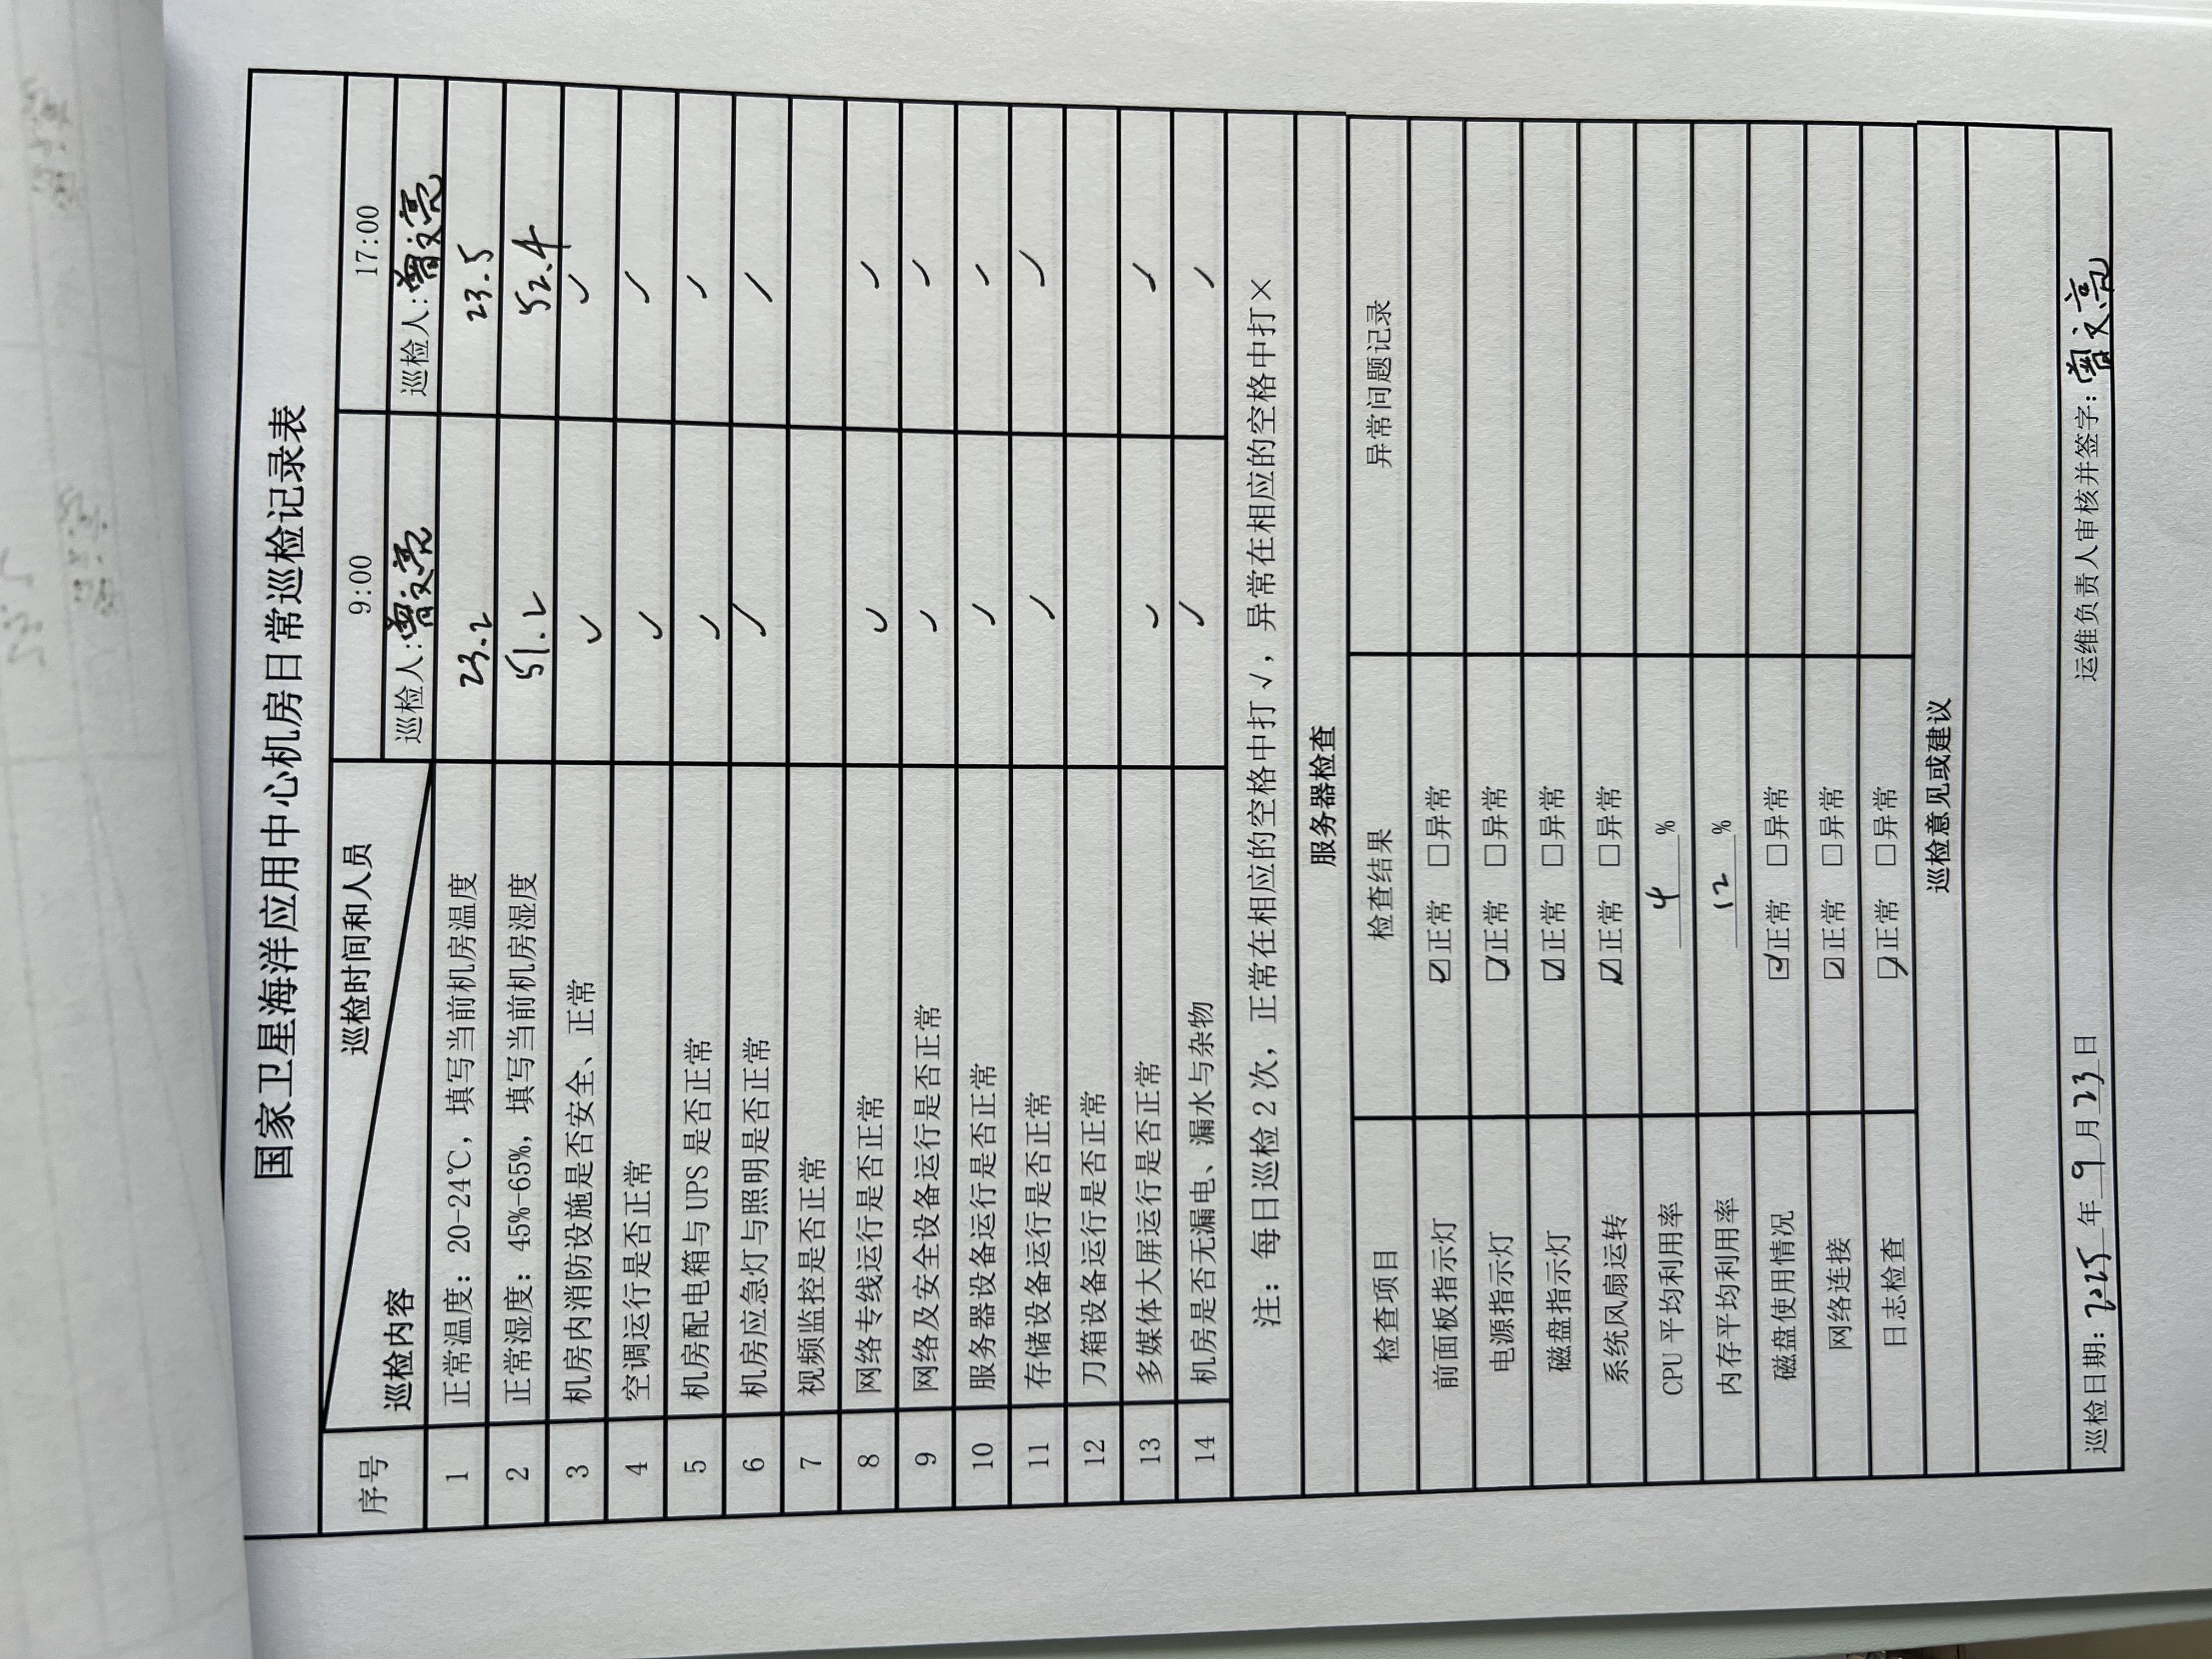 国家卫星海洋应用中心机房日常巡检记录表
序号 巡检内容 巡检时间和人员 9:00 17:00
巡检人:曾文亮 巡检人:曾文亮
1 正常温度：20-24℃，填写当前机房温度 23.2 23.5
2 正常湿度：45%-65%，填写当前机房湿度 51.2 52.4
3 机房内消防设施是否安全、正常 ✓ ✓
4 空调运行是否正常 ✓ ✓
5 机房配电箱与 UPS 是否正常 ✓ ✓
6 机房应急灯与照明是否正常 ✓ ✓
7 视频监控是否正常
8 网络专线运行是否正常 ✓ ✓
9 网络及安全设备运行是否正常 ✓ ✓
10 服务器设备运行是否正常 ✓ ✓
11 存储设备运行是否正常 ✓ ✓
12 刀箱设备运行是否正常
13 多媒体大屏运行是否正常 ✓ ✓
14 机房是否无漏电、漏水与杂物 ✓ ✓
注：每日巡检 2 次，正常在相应的空格中打 √，异常在相应的空格中打×
服务器检查
检查项目 检查结果 异常问题记录
前面板指示灯 ☑正常 □异常
电源指示灯 ☑正常 □异常
磁盘指示灯 ☑正常 □异常
系统风扇运转 ☑正常 □异常
CPU 平均利用率 4 %
内存平均利用率 12 %
磁盘使用情况 ☑正常 □异常
网络连接 ☑正常 □异常
日志检查 ☑正常 □异常
巡检意见或建议
巡检日期：2025 年 9 月 23 日 运维负责人审核并签字：曾文亮